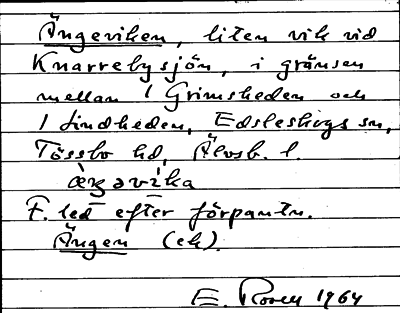 Ängeviken, liten vik vid
Knarrebysjön, i gränsen
mellan 1 Grimsheden och
1 Lindheden, Edsleskogs sn,
Tössbo hd, Älvsb. l.
F. led efter förpantn.
Ängen (ek).
E. Rosell 1964